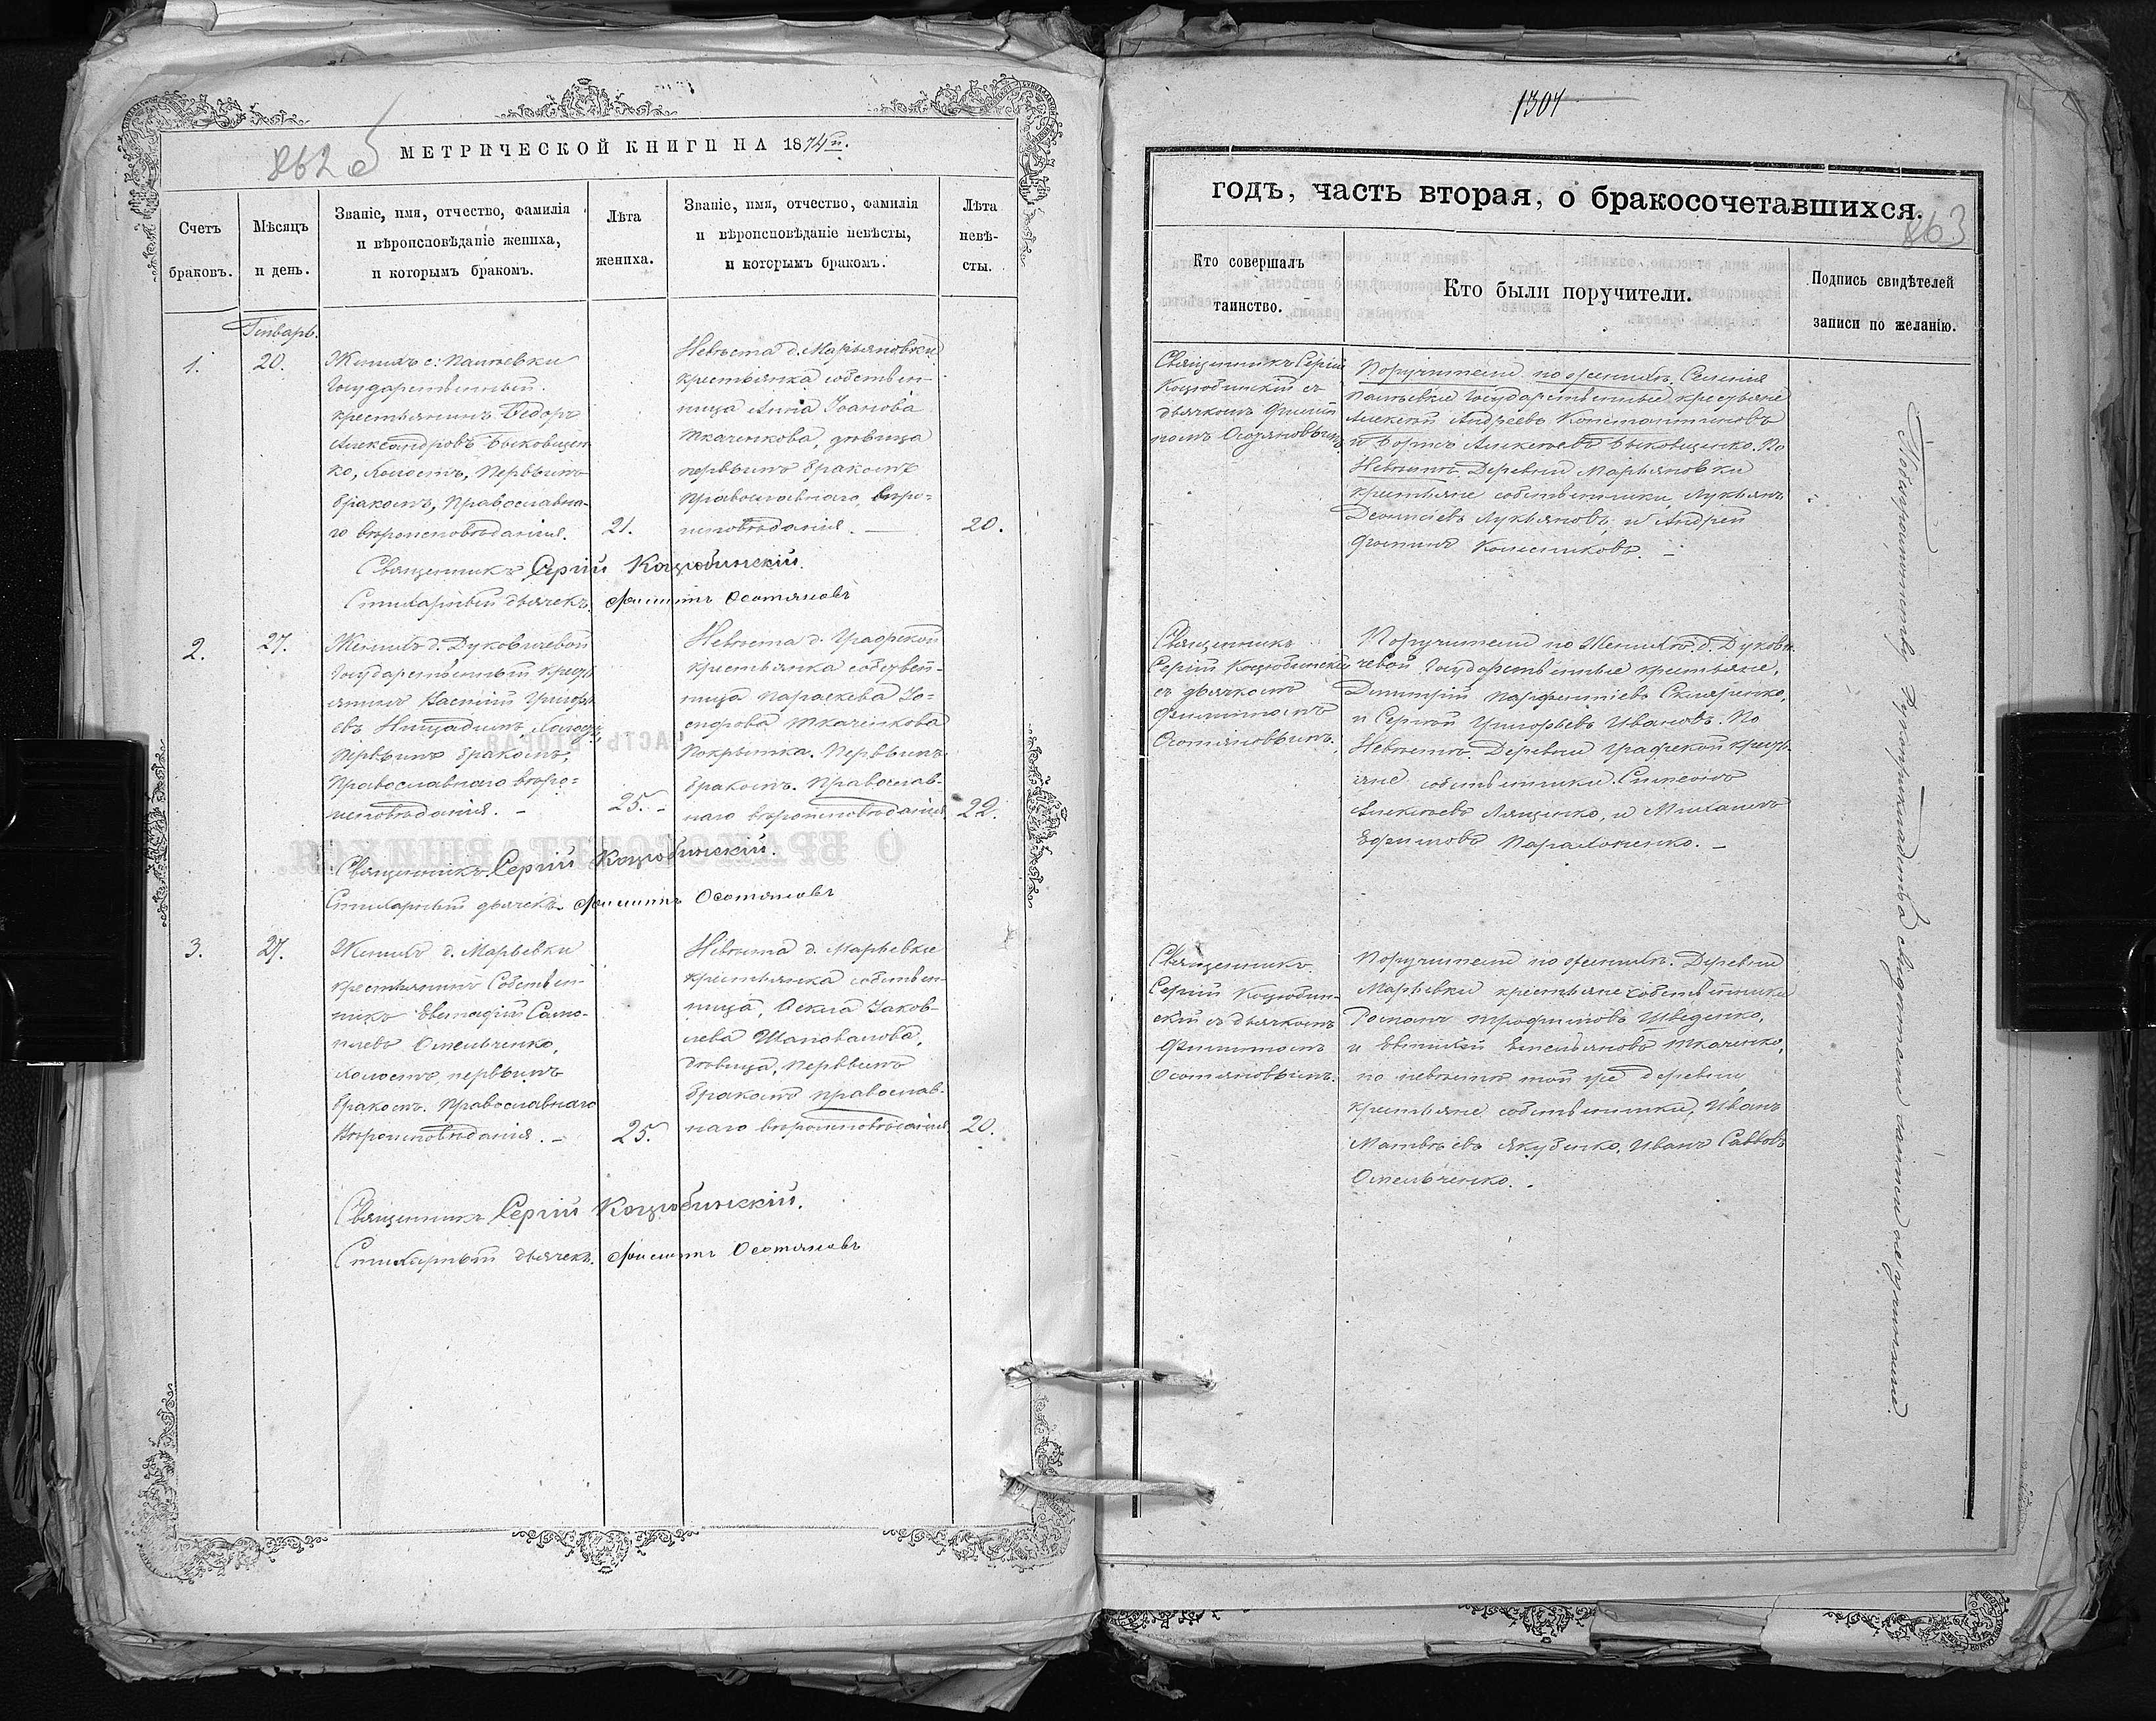 862 б
МЕТРИЧЕСКОЙ КНИГИ НА 1874й.
Счетъ
браковъ.
Мѣсяцъ
и день.
Званіе, имя, отчество, фамилія
и вѣроисповѣданіе жениха,
и которымъ бракомъ.
Лѣта
жениха.
Званіе, имя, отчество, фамилія
и вѣроисповѣданіе невѣсты,
и которымъ бракомъ.
Лѣта
невѣ-
сты.
Январь.
1.
20.
Женихъ с.
Государственный
крестьянинъ Ѳедоръ
Александровъ Быковщен-
ко, холостъ, первымъ
бракомъ, Православна-
го вѣроисповѣданія.
21.
Невѣста д. Марьяновки
крестьянка собствен-
ница Анна Іоанова
Ткаченкова, дѣвица
первымъ бракомъ
Православнаго вѣро-
исповѣданія.
20.
Священникъ Сергій Коцюбинскій.
Стихарный дьячекъ Филиппъ
2.
27.
Женихъ д. Духовничевой
Государственный крест-
янинъ Василій Григорь-
евъ холостъ,
первымъ бракомъ,
Православнаго вѣро-
исповѣданія. -
25. -
Невѣста д. Графской
крестьянка собствен-
ница Параскева Іо-
сифова Ткаченкова
Покрытка. Первымъ
бракомъ. Православ-
наго вѣроисповѣданія
22.
Священникъ Сергій Коцюбинскій.
Стихарный дьячекъ Филиппъ
3.
27.
Женихъ д. Марьевки
крестьянинъ Собствен-
никъ Евстафій Само-
йлевъ Омельченко,
холостъ, первымъ
бракомъ. Православнаго
Вѣроисповѣданія. -
25.
Невѣста д. Марьевки
крестьянка собствен-
ница, Ѳекла Іаков-
лева Шаповалова,
дѣвица, первымъ
бракомъ православ-
наго вѣроисповѣданія
20.
Священникъ Сергій Коцюбинскій.
Стихарный дьячекъ Филиппъ
1304
годъ, часть вторая, о бракосочетавшихся.
863
Кто совершалъ
таинство.
Кто были поручители.
Подпись свидѣтелей
записи по желанію.
Священникъ Сергій
Коцюбинскій съ
дьячкомъ Филип-
помъ
Поручители по женихѣ. Селенія
Государственные крестьяне
Алексѣй Андреевъ Константиновъ
и Борисъ Алексѣевъ Быковщенко. По
Невѣстѣ. Деревни Марьяновки
крестьяне собственники Лукьянъ
Деонисіевъ Лукьяновъ, и Андрей
Фоминъ Колесниковъ. -
Священникъ
Сергій Коцюбинскій
съ дьячкомъ
Филиппомъ
Поручители по Женихѣ д. Духовни-
чевой Государственные крестьяне,
Димитрій Парфентіевъ Скляренко,
и Сергѣй Григорьевъ Ивановъ. По
Невѣстѣ. Деревни Графской крест-
яне собственники. Симеонъ
Алексѣевъ Лященко, и Михаилъ
Ефимовъ Парахоненко. -
Священникъ
Сергій Коцюбин-
скій съ дьячкомъ
Филиппомъ
Поручители по женихѣ. Деревни
Марьевки крестьяне собственники
Романъ Трофимовъ Шведенко,
и Евтихій Емельяновъ Ткаченко,
по невѣстѣ той же деревни
крестьяне собственники, Иванъ
Матвѣевъ Якубенко, Иванъ Савовъ
Омельченко.
рукоприкладства свидѣтели записи не учинили.